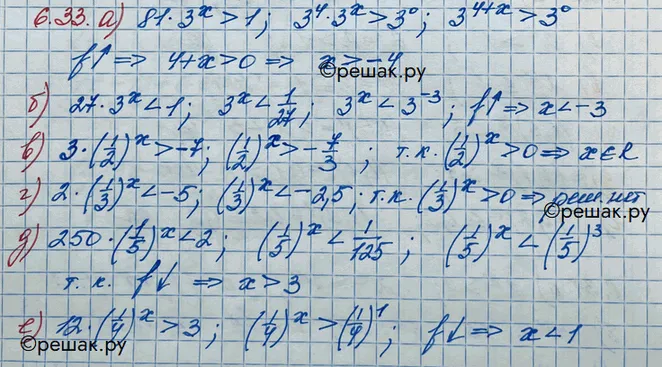 6.33. а) 81·3^x > 1; 3^4·3^x > 3^0; 3^{4+x} > 3^0
f↑ ⇒ 4+x > 0 ⇒ x > -4
©решак.ру
б) 27·3^x < 1; 3^x < 1/27; 3^x < 3^{-3}; f↑ ⇒ x < -3
в) 3·(1/2)^x > -7; (1/2)^x > -7/3; т.к. (1/2)^x > 0 ⇒ x∈R
г) 2·(1/3)^x < -5; (1/3)^x < -2,5; т.к. (1/3)^x > 0 ⇒ реш. нет
©решак.ру
д) 250·(1/5)^x < 2; (1/5)^x < 1/125; (1/5)^x < (1/5)^3
т.к. f↓ ⇒ x > 3
е) 12·(1/4)^x > 3; (1/4)^x > (1/4)^1; f↓ ⇒ x < 1
©решак.ру